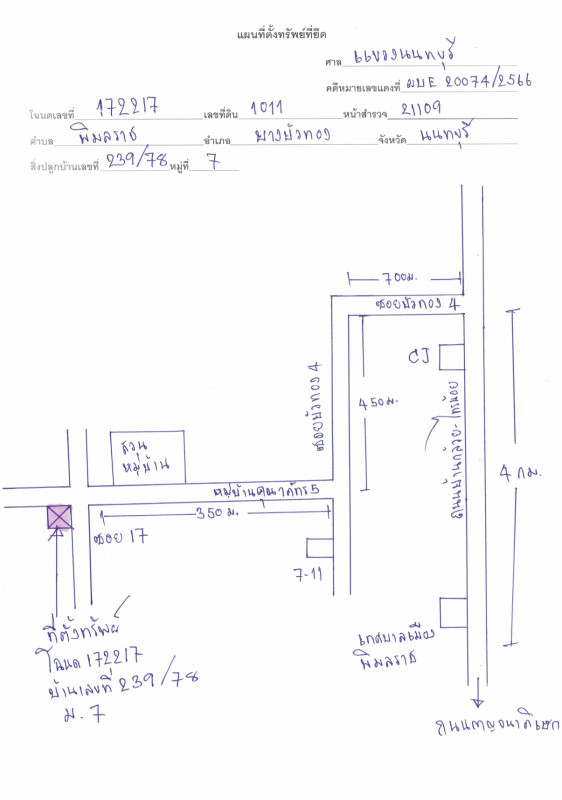 แผนที่ตั้งทรัพย์ที่ยึด
ศาล แขวงนนทบุรี
คดีหมายเลขแดงที่ ผบE 20074/2566
โฉนดเลขที่ 172217 เลขที่ดิน 1011 หน้าสำรวจ 21109
ตำบล พิมลราช อำเภอ บางบัวทอง จังหวัด นนทบุรี
สิ่งปลูกบ้านเลขที่ 239/78 หมู่ที่ 7
700ม.
ซอยบัวทอง 4
CJ
ซอยบัวทอง 4
450ม.
ถนนบ้านกล้วย-ไทรน้อย
4 กม.
สวน
หมู่บ้าน
หมู่บ้านคุณาภัทร5
350 ม.
ซอย 17
7-11
ที่ตั้งทรัพย์
โฉนด 172217
บ้านเลขที่ 239/78
ม. 7
เทศบาลเมือง
พิมลราช
ถนนกาญจนาภิเษก